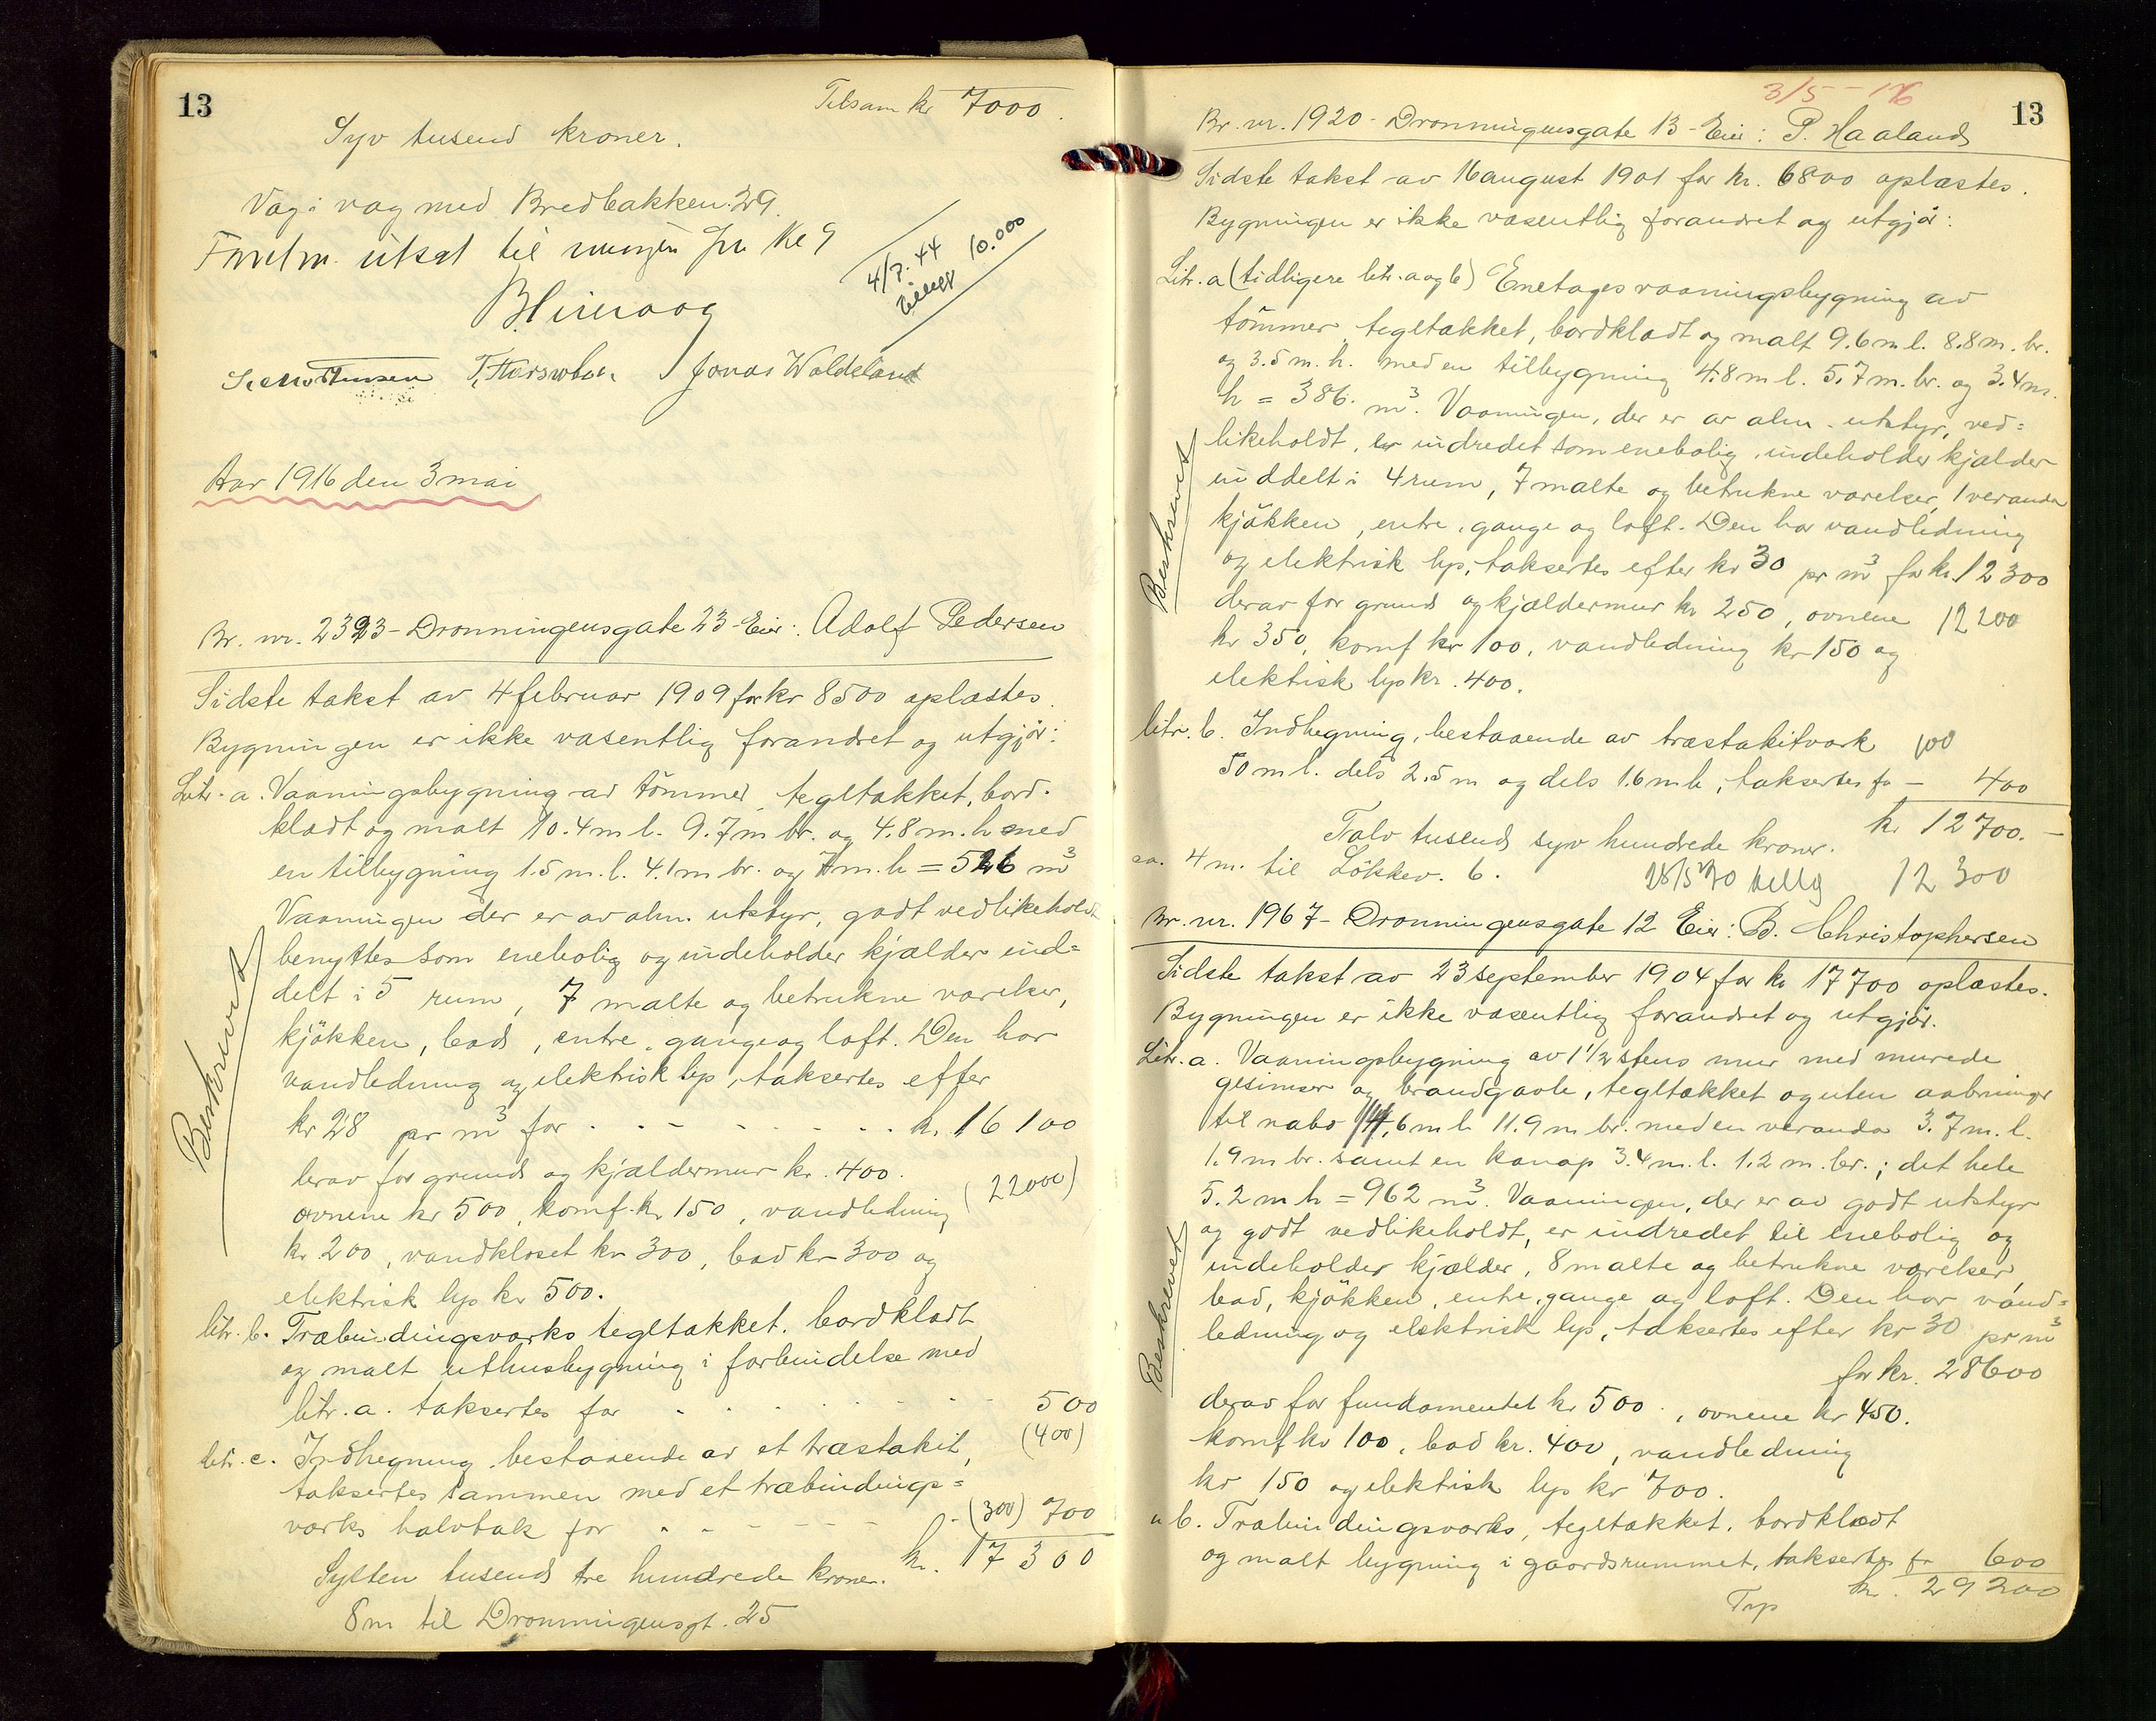 13
Tilsam kr 7000.
Syv tusend kroner.
Væg i væg med Bredbakken 29.
utsat til kl 9
4/7.44
10.000
Jonas Waldeland
Aar 1916 den 3 mai
Br. nr. 2323 - Dronningensgate 23 - Eier: Adolf Pedersen
Sidste takst av 4 februar 1909 for kr 8500 oplæstes.
Bygningen er ikke væsentlig forandret og utgjör:
Litr. a. Vaaningsbygning av tömmer, tegltækket, bord-
klædt og malt 10.4 m l. 9.7 m br. og 4.8 m. h med
en tilbygning 1.5 m. l. 4.1 m br. og 7 m. h = 526 m3
Vaaningen der er av alm. utstyr, godt vedlikeholdt
benyttes som enebolig og indeholder kjælder ind=
delt i 5 rum, 7 malte og betrukne værelser,
kjökken, bad, entre, gange og loft. Den har
vandledning og elektrisk lys, taksertes efter
kr 28 pr m3 for . - - - - - - . . kr. 16 100
derav for grund og kjældermur kr. 400.
(22000)
ovnene kr 500, komf. kr 150, vandledning
kr 200, vandkloset kr 300, bad kr 300 og
elektrisk lys kr 500.
Beskrevet
litr. b. Træbindingsværks tegltækket, bordklædt
og malt uthusbygning i forbindelse med
litr. a. taksertes for . . . . . - - 500
(400)
litr. c. Indhegning, bestaaende av et træstakit,
taksertes sammen med et træbindings=
værks halvtak for . - - - - - (300) 700
kr. 17 300
Sytten tusend tre hundrede kroner.
8 m til Dronningensgt. 25
3/5 - 16
13
Br. nr. 1920 - Dronningensgate 13 - Eier: P. Haaland
Sidste takst av 16 august 1901 for kr. 6800 oplæstes.
Bygningen er ikke væsentlig forandret og utgjör:
Litr. a (tidligere litr. a og b) Enetages vaaningsbygning av
tömmer, tegltækket, bordklædt og malt 9.6 m l. 8.8 m. br.
og 3.5 m. h. med en tilbygning 4.8 m l. 5.7 m. br. og 3.4 m.
h = 386. m3. Vaaningen, der er av alm. utstyr, ved=
likeholdt, er indredet som enebolig, indeholder kjælder
inddelt i 4 rum, 7 malte og betrukne værelser, 1 veranda
kjökken, entre, gange og loft. Den har vandledning
og elektrisk lys, taksertes efter kr 30 pr m3 for kr. 12 300
derav for grund og kjældermur kr 250, ovnene 12 200
kr 350, komf kr 100, vandledning kr 150 og
elektisk lys kr. 400.
Beskrevet
litr. b. Indhegning, bestaaende av træstakitværk 100
50 m l. dels 2.5 m og dels 1.6 m h, taksertes for - 400
kr 12 700. -
Tolv tusend syv hundrede kroner.
ca. 4 m. til Lökkev. 6.
12 300
Br. nr. 1967 - Dronningensgate 12 Eier: B. Christophersen
Sidste takst av 23 september 1904 for kr 17 700 oplæstes.
Bygningen er ikke væsentlig forandret og utgjör.
Litr. a. Vaaningsbygning av 1 1/2 stens mur med murede
gesimser og brandgavle, tegltækket og uten aabninger
til nabo 14,6 m l. 11.9 m br. med en veranda 3.7 m. l.
1.9 m br. samt en kanap 3.4 m. l. 1.2 m. br.; det hele
5.2 m h = 962 m3. Vaaningen, der er av godt utstyr
og godt vedlikeholdt, er indredet til enebolig og
indeholder kjælder, 8 malte og betrukne værelser,
bad, kjökken, entre, gange og loft. Den har vand=
ledning og elektrisk lys, taksertes efter kr 30 pr m3
for kr. 28600
Beskrevet
derav for fundamentet kr 500., ovnene kr 450.
komf kr 100, bad kr. 400, vandledning
kr 150 og elektisk lys kr 700.
" b. Træbindingsværks, tegltækket, bordklædt
og malt bygning i gaardsrummet, taksertes for 600
kr. 29 200